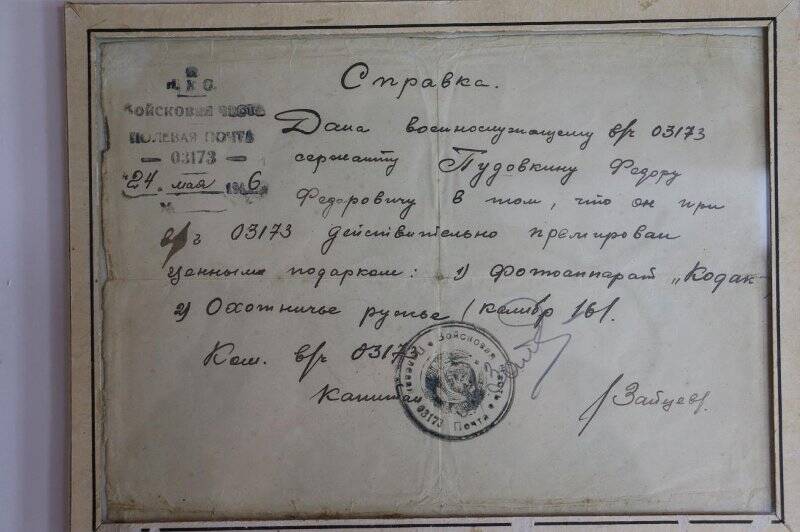 Н. К. О.
ВОЙСКОВАЯ ЧАСТЬ
ПОЛЕВАЯ ПОЧТА
— 03173 —
"24" мая 1946
Справка.
Дана военнослужащему в/ч 03173
сержанту Пудовкину Федору
Федоровичу в том, что он при
в/ч 03173 действительно премирован
ценными подарком: 1) Фотоаппарат „Кодак"
2) Охотничье ружье /калибр 16/.
Ком. в/ч 03173
Капитан
/Зайцев/.
Войсковая часть
03173
Полевая Почта